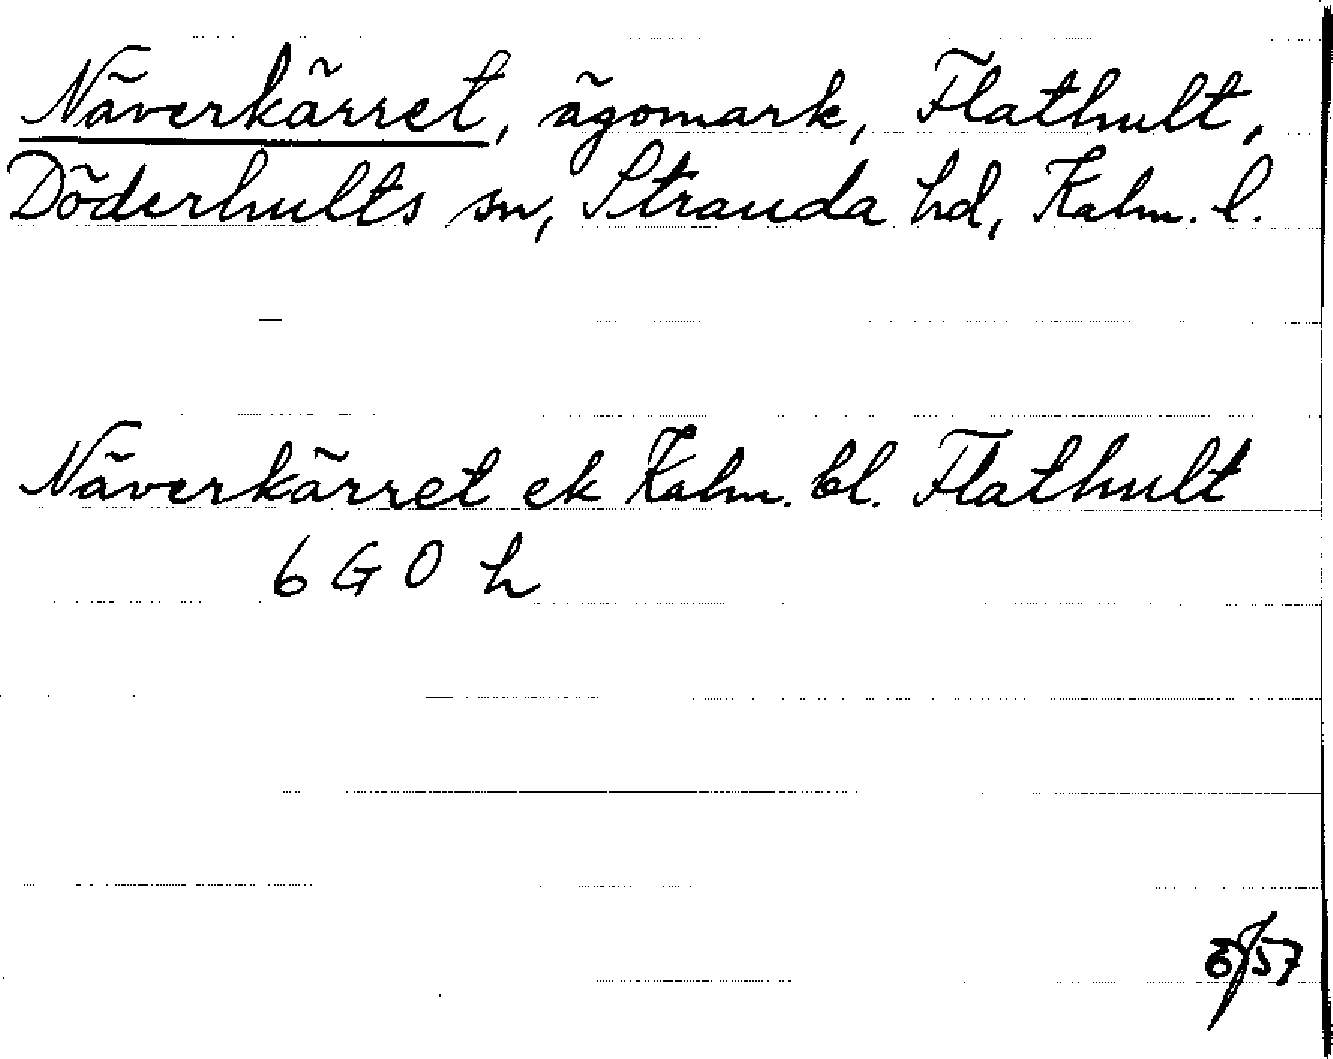 Näverkärret, ägomark, Flathult,
Döderhults sn, Stranda hd, Kalm. l.
Näverkärret ek Kalm. bl. Flathult
6 G O h
57